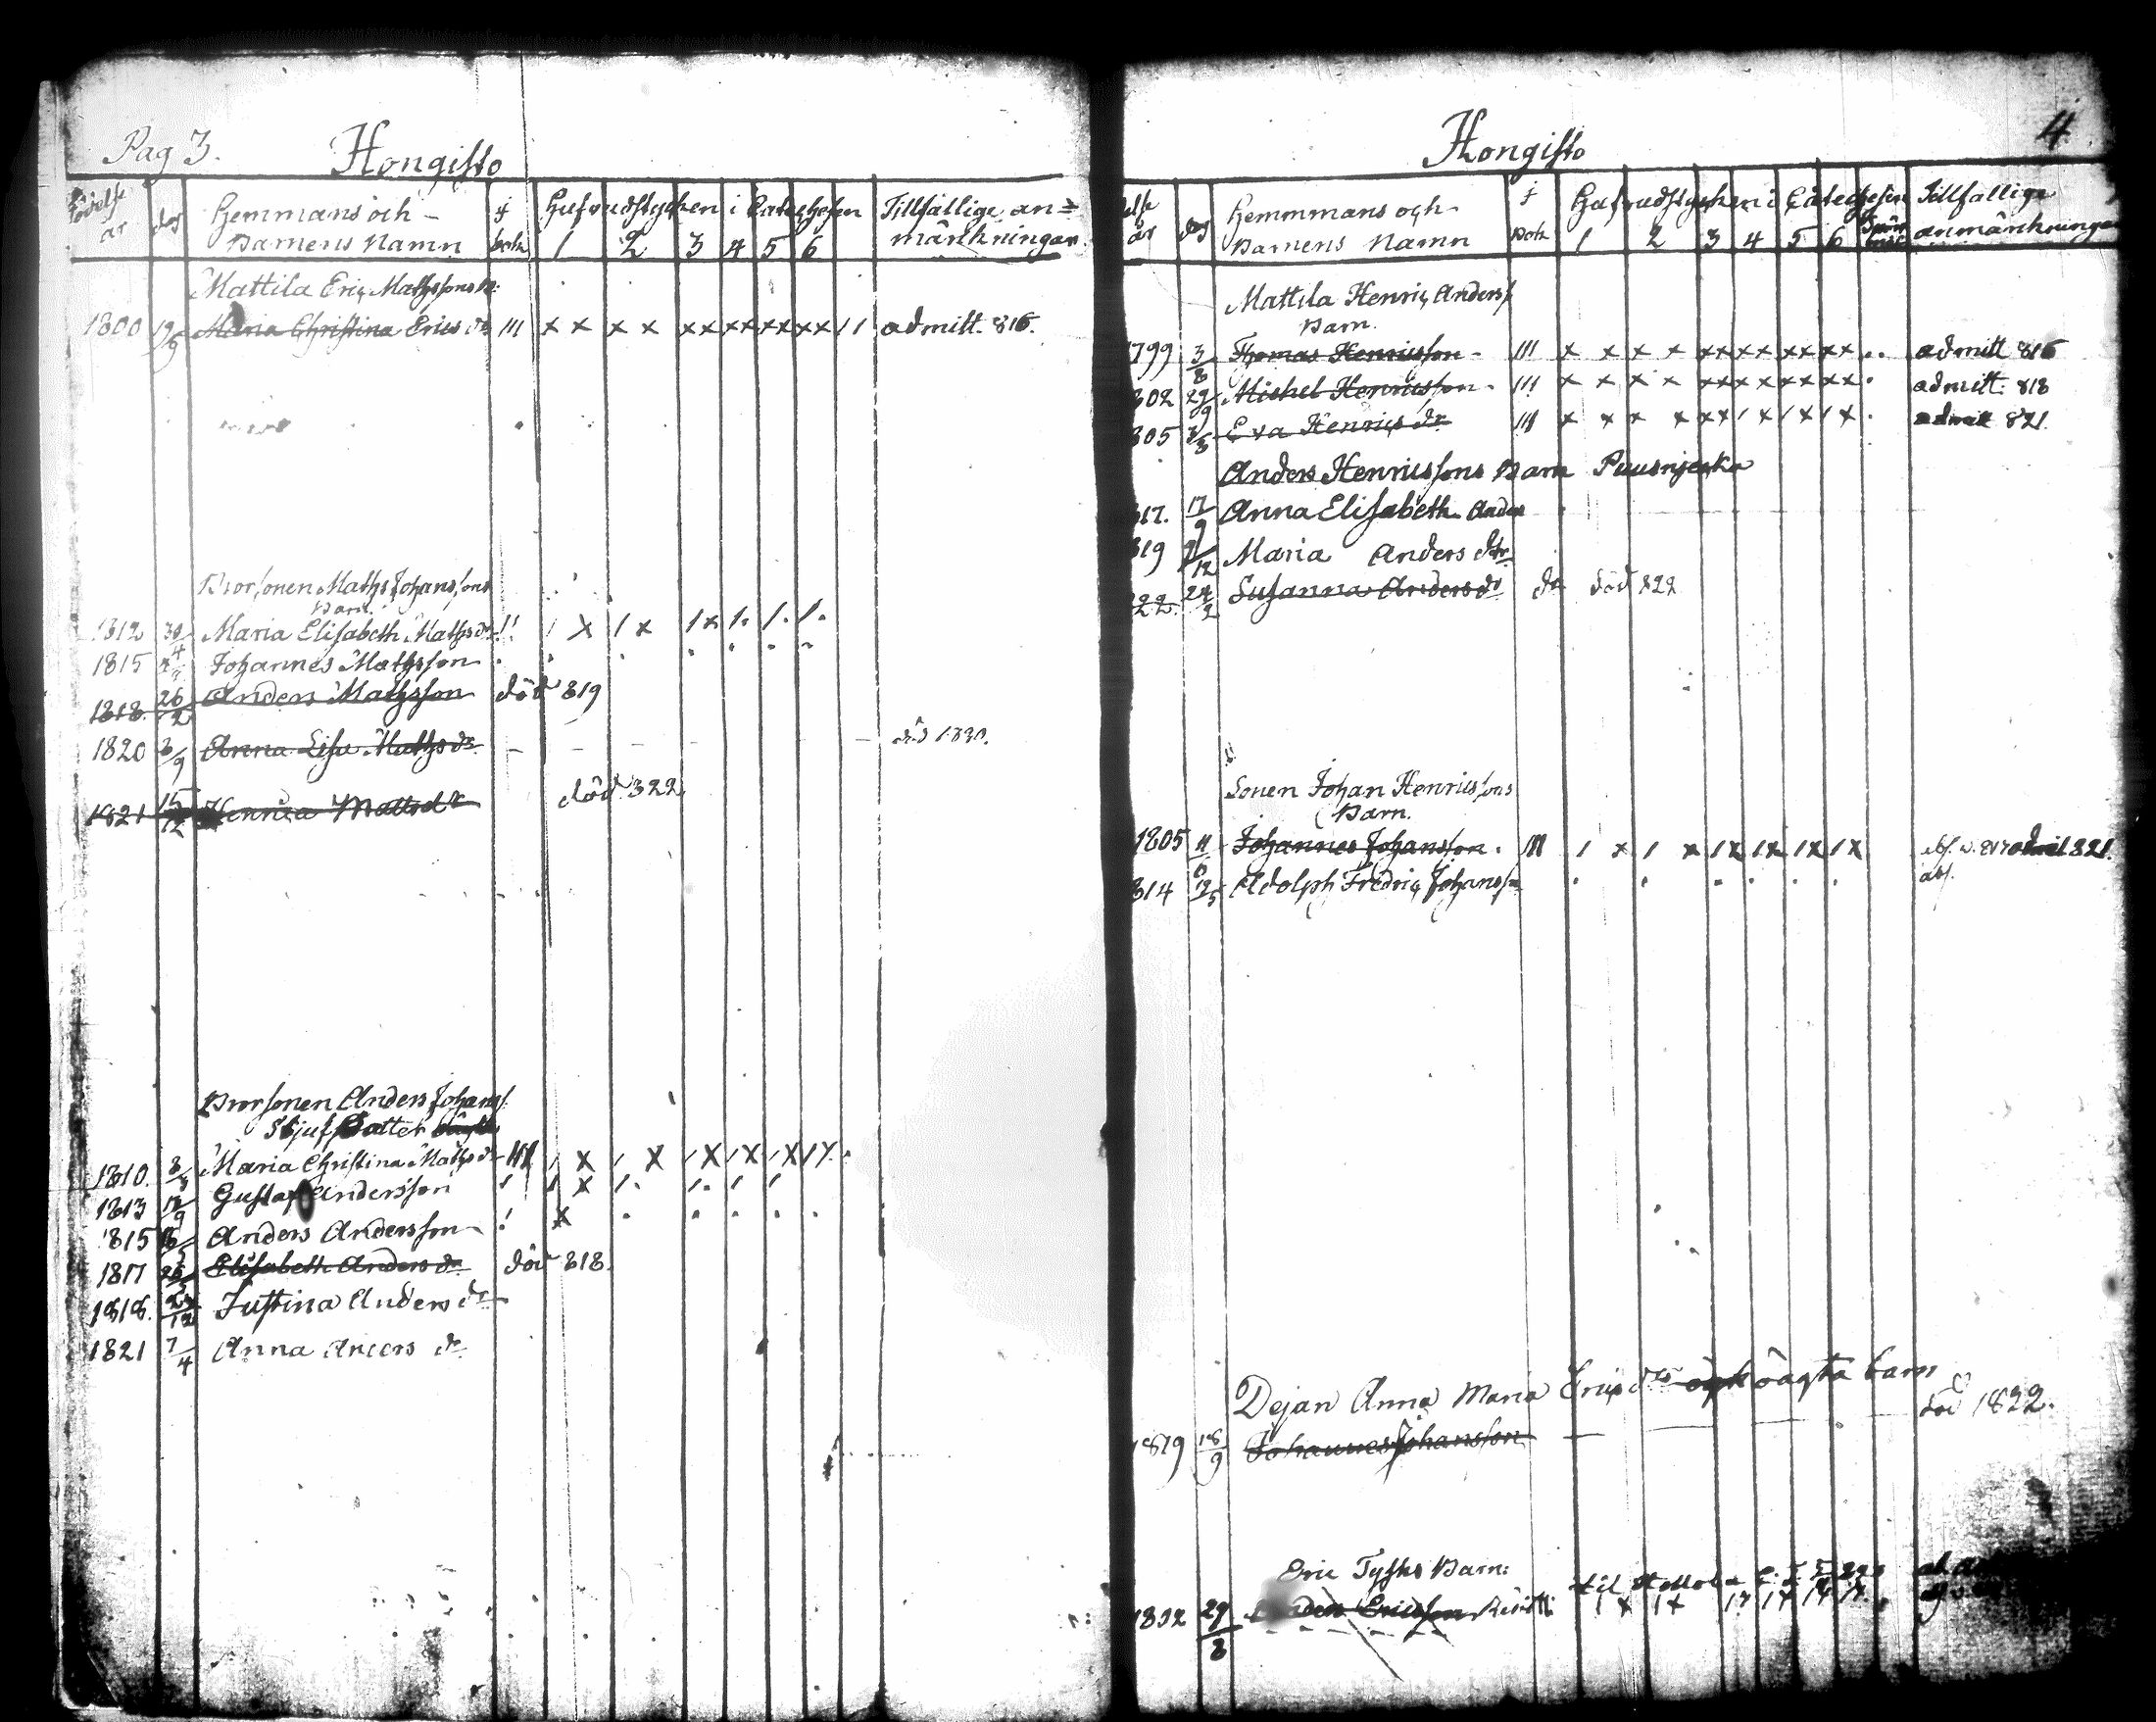 Pag 3.
Hongisto
Födelse år
dag
Hemmans och Barnens Namn
j bok
Hufvudstycken i Catechesen
1 2 3 4 5 6
Tillfällige anmärkningar.
Mattila Eric Mathssons B:
1800 19/9 Maria Christina Erics dr III x x x x xx xx xx xx 11 admitt. 816.
Brorsonen Maths Johanssons
Barn.
1812 30/4 Maria Elisabeth Maths dr !! 1 x 1 x 1 x 1. 1. 1.
1815 Johannes Mathsson
1818. 26/2 Anders Mathsson död 819
1820 3/9 Anna Lisa Maths dr död 1830.
1821 15/12 Henrica Matts dr död 822
Brorsonen Anders Johanss:
Stjuf Dotter
1810. 3/3 Maria Christina Maths dr 1 x 1 x 1 x 1 x 1 x 1 x
1813 12/9 Gustaf Andersson 1 1 x 1. 1. 1 1
1815 Anders Andersson ! x
1817 Elisabeth Anders dr död 818.
1818. Justina Anders dr
1821 7/4 Anna Anders dr
4
Hongisto
år
dag
Hemmans och Barnens Namn
j Bok
Hufvudstycken i Catechesen
1 2 3 4 5 6
Tillfällige anmärkningar
Mattila Henric Anderss
Barn.
1799 3/8 Thomas Henricsson III x x x x xx xx xx xx .. admitt 816
802 29/9 Michel Henricsson III x x x x xx xx xx xx . admitt. 818
805 Eva Henrics dr III x x x x xx 1 x 1 x 1 x . admitt 821.
Anders Henricssons Barn
817. 17/9 Anna Elisabeth Anders
819 9/12 Maria Anders dr
822. 24/2 Susanna Anders dr död 822
Sonen Johan Henricssons
Barn.
1805 11/6 Johannes Johansson III 1 x 1 x 1x 1x 1x 1x admit 821.
814 19/5 Adolph Fredric Johanss abs.
Dejan Anna Maria Erics drs oägta barn
1819 18/9 Johannes Johansson död 1822.
Eric Tysks Barn:
29/8 Ericsson